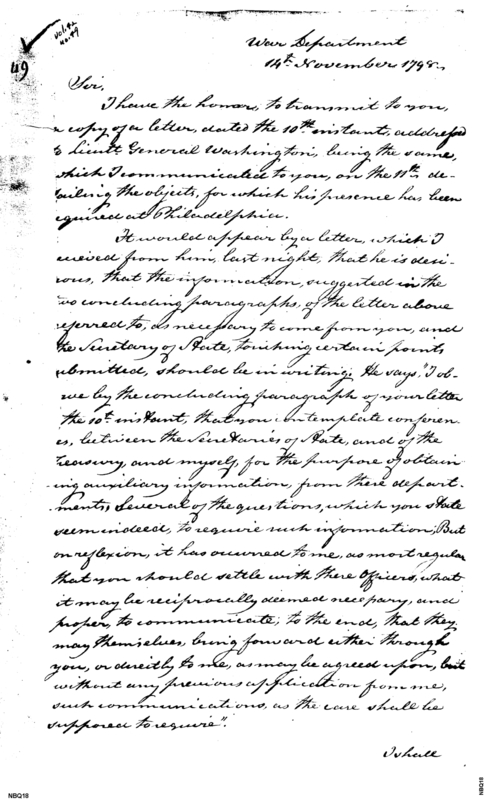 Vol. 42
No. 49
49
War Department
14th November 1798.
Sir,
I have the honor, to transmit to you,
a copy of a letter, dated the 10th instant, addressed
to Lieut. General Washington, being the same,
which I communicated to you, on the 11th de-
tailing the objects, for which his presence has been
equired at Philadelphia.
It would appear by a letter, which I
received from him, last night, that he is desi-
rous, that the information, suggested in the
two concluding paragraphs, of the letter above
eferred to, as necessary to come from you, and
the Secretary of State, touching certain points
ubmitted, should be in writing; He says. "I ob-
rve by the concluding paragraph of your letter
the 10th instant, that you contemplate conferen-
es, between the Secretaries of State, and of the
Treasury, and myself, for the purpose of obtain
ing auxiliary information, from these depart-
ments, Several of the questions, which you state
seem indeed, to require such information; But
on reflexion, it has occurred to me, as most regular
that you should settle with these Officers, what
it may be reciprocally deemed necessary, and
proper, to communicate; to the end, that they
may themselves, bring forward either through
you, or directly to me, as may be agreed upon, but
without any previous application from me,
such communications, as the case shall be
supposed to require".
I shall
NBQ18
NBQ18